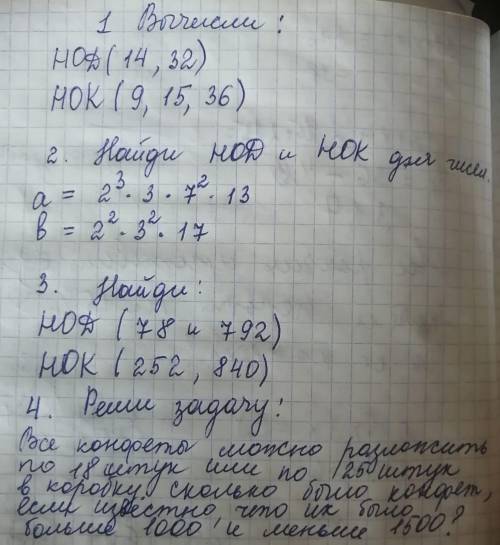 1 Вычисли:
НОД (14, 32)
НОК (9, 15, 36)
2. Найди НОД и НОК для чисел.
a = 2³ · 3 · 7² · 13
b = 2² · 3² · 17
3. Найди:
НОД (78 и 792)
НОК (252, 840)
4. Реши задачу:
Все конфеты можно разложить
по 18 штук или по 25 штук
в коробку, сколько было конфет,
если известно, что их было
больше 1000 и меньше 1500?